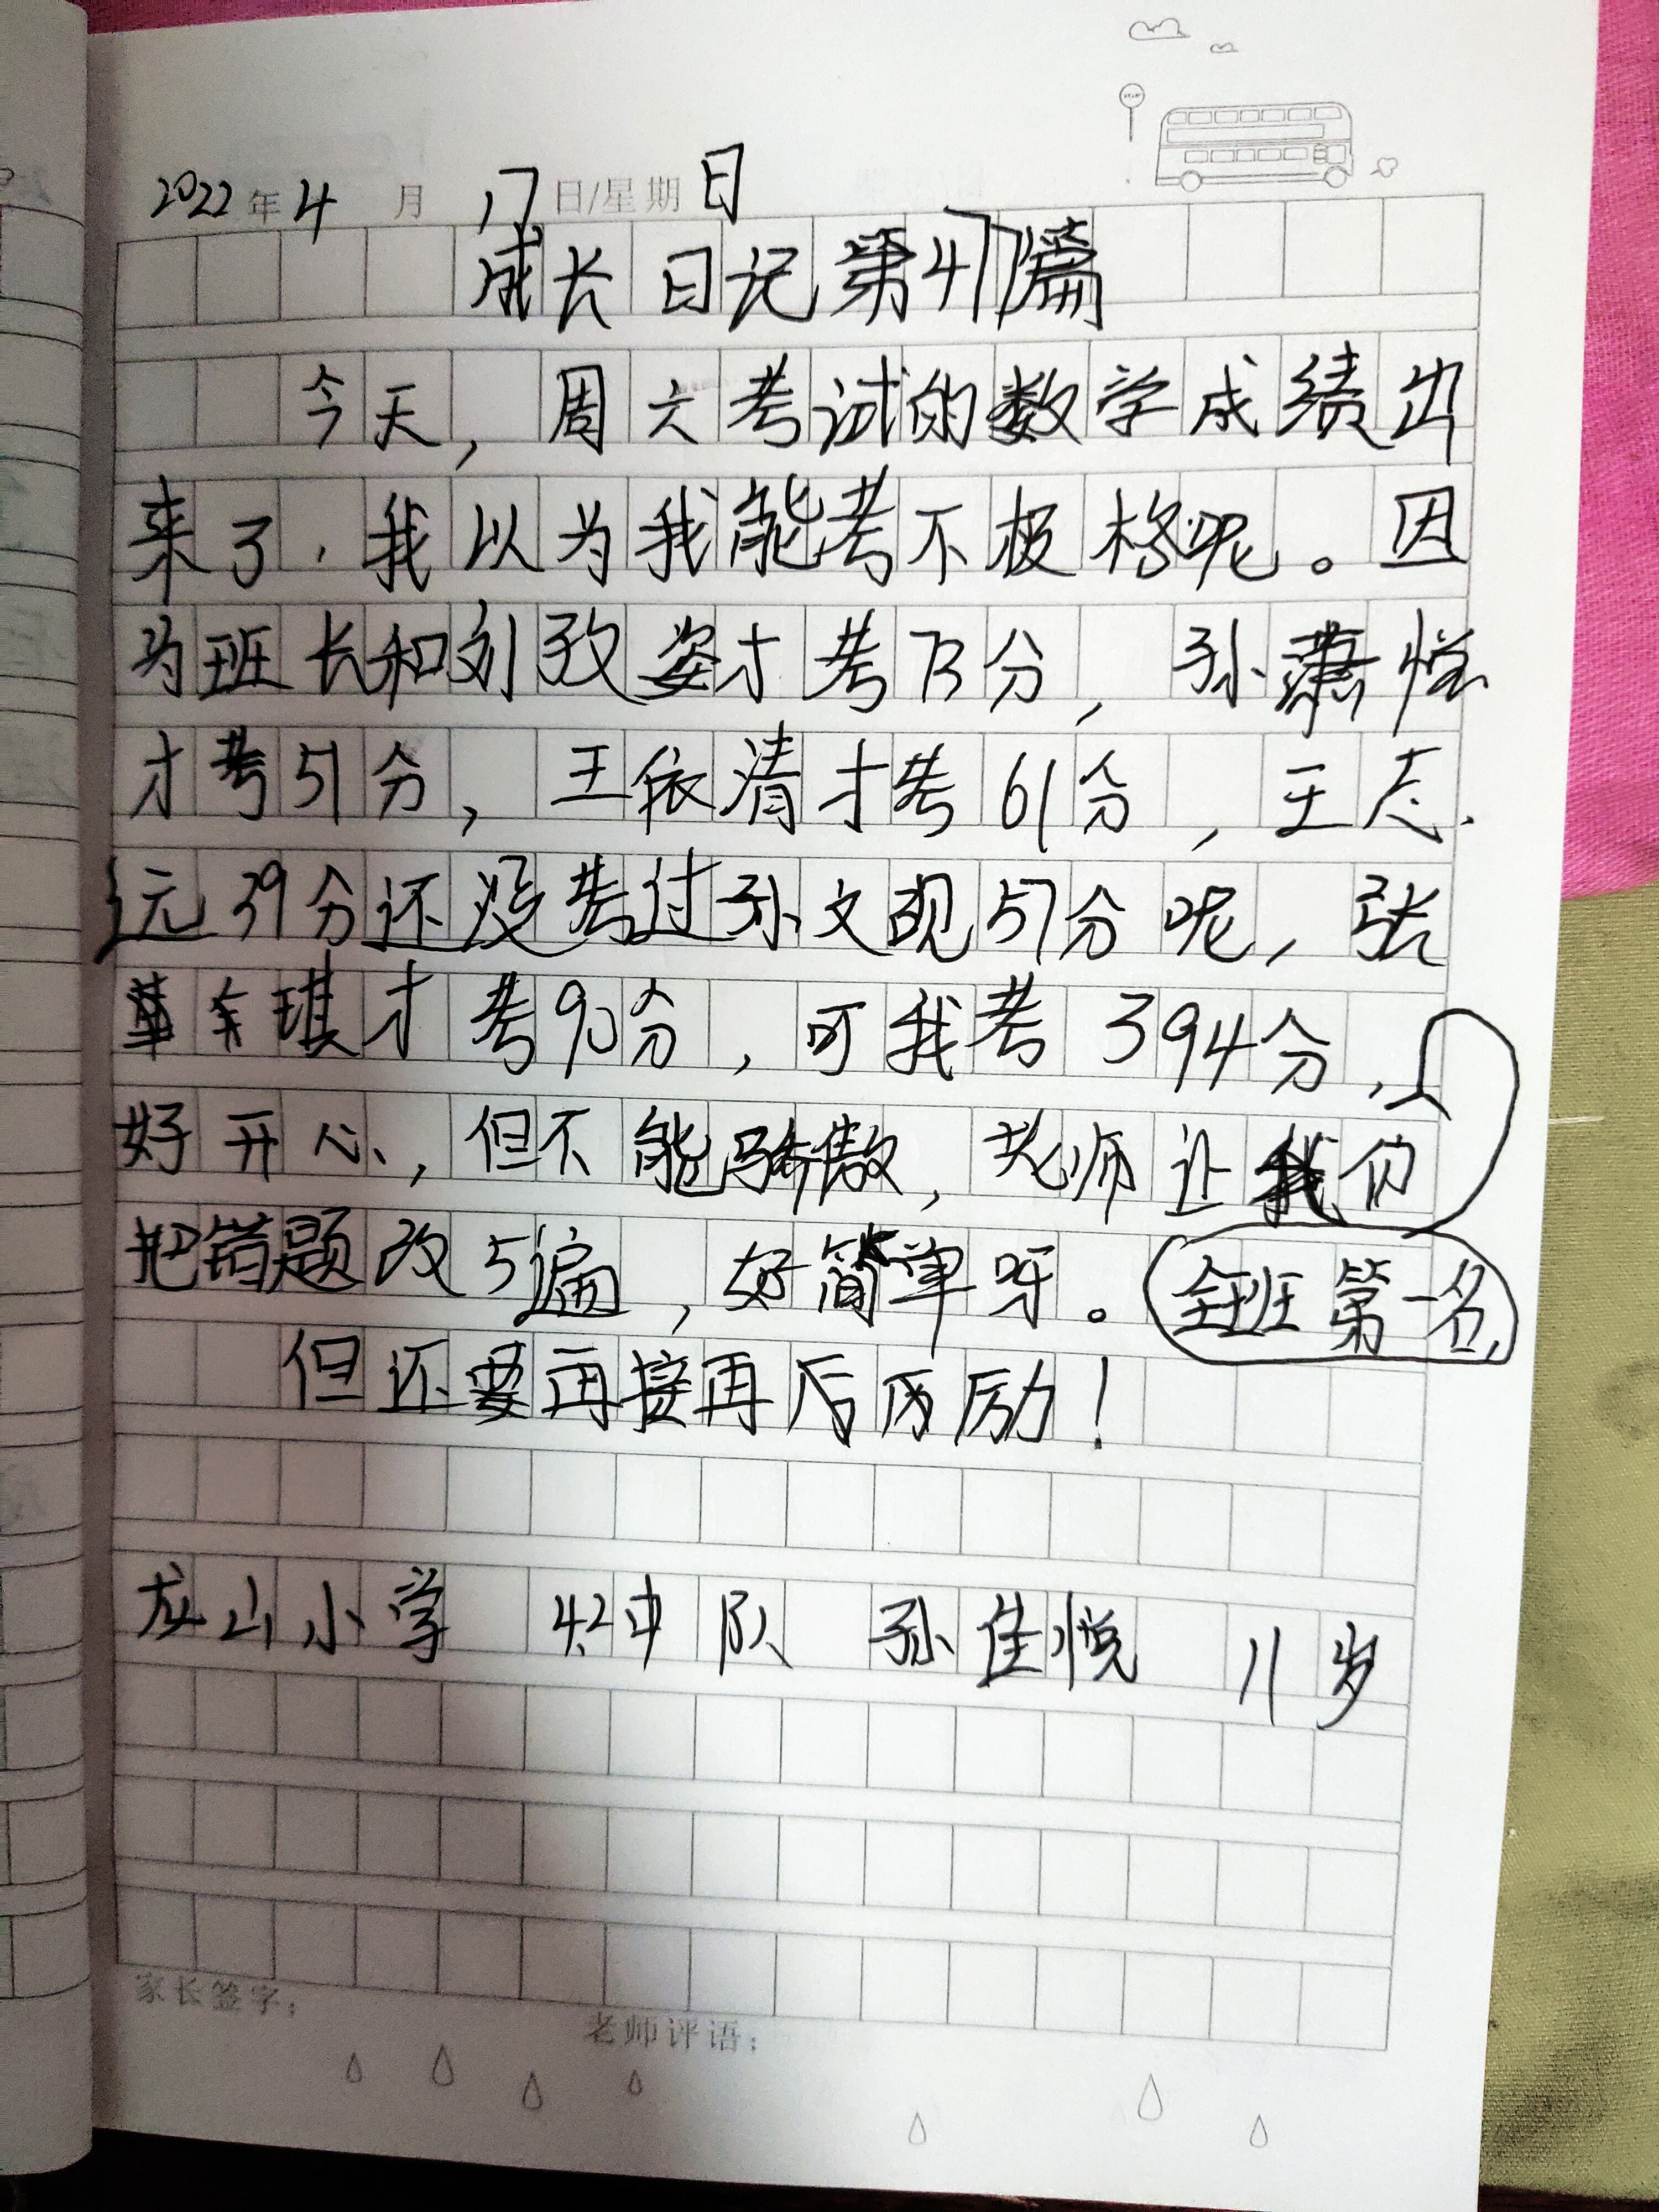 2022年4月17日/星期日
成长日记第47篇
今天，周六考试的数学成绩出
来了，我以为我能考不极格呢。因
为班长和刘孜姿才考73分，孙萧悦
才考51分，王依清才考61分，王志
远39分还没考过孙文砚57分呢，张
琪才考90分，可我考394分，
好开心，但不能骄傲，老师让我们
把错题改5遍，好简单呀。全班第一名，
但还要再接再后厉励！
龙山小学 4.2中队 孙佳悦 11岁
家长签字：
老师评语：